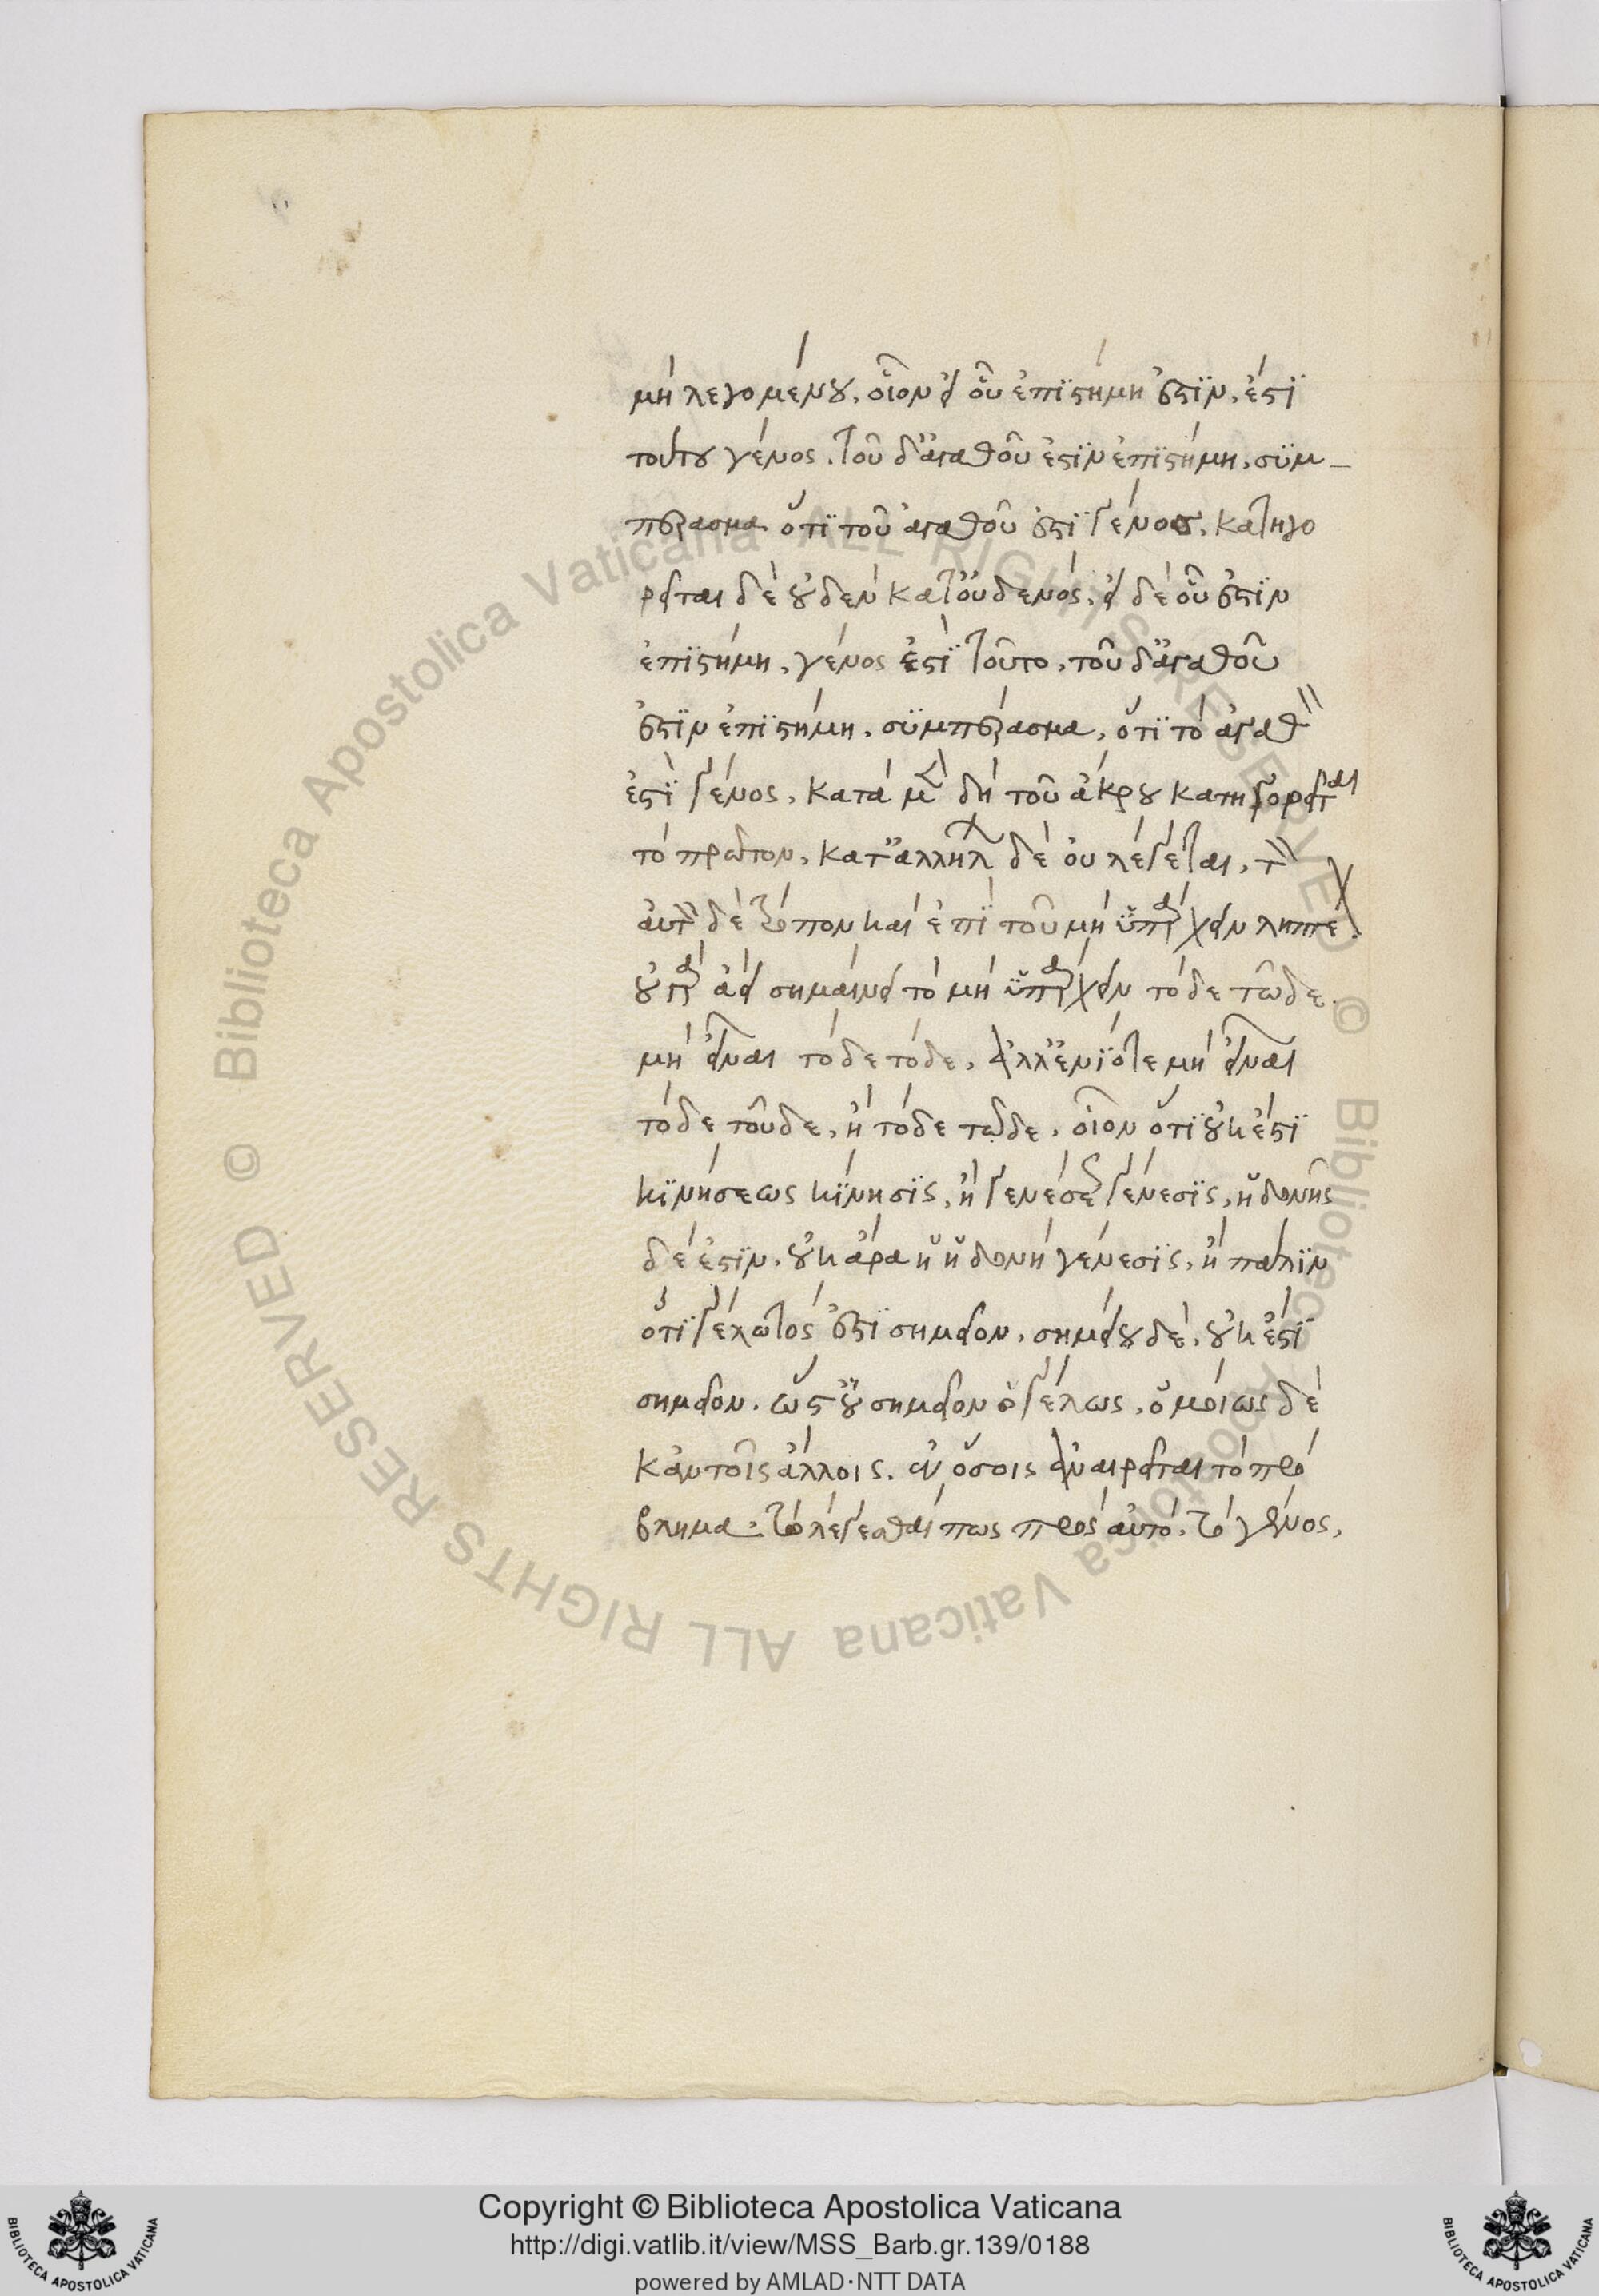 μὴ λεγομένου. οἷον εἰ οὗ ἐπιστήμη ἐστὶν, ἔστι
τούτου γένος. τοῦ δ' ἀγαθοῦ ἐστὶν ἐπιστήμη, συμ-
πέρασμα ὅτι τοῦ ἀγαθοῦ ἐστὶ γένος. κατηγο
ρεῖται δὲ οὐδὲν κατ' οὐδενός. εἰ δὲ οὗ ἐστὶν
ἐπιστήμη, γένος ἐστὶ τοῦτο. τοῦ δ' ἀγαθοῦ
ἐστὶν ἐπιστήμη. συμπέρασμα, ὅτι τὸ ἀγαθὸν
ἐστὶ γένος. κατὰ μὲν δὴ τοῦ ἄκρου κατηγορεῖται
τὸ πρῶτον. κατ' ἀλλήλων δὲ οὐ λέγεται. τὸν
αὐτὸν δὲ τρόπον καὶ ἐπὶ τοῦ μὴ ὑπάρχειν ληπτέον.
οὐ γὰρ ἀεὶ σημαίνει τὸ μὴ ὑπάρχειν τόδε τῶδε.
μὴ εἶναι τόδε τόδε. ἀλλ' ἐνίοτε μὴ εἶναι
τόδε τοῦδε, ἢ τόδε τῶδε. οἷον ὅτι οὐκ ἔστι
κινήσεως κίνησις, ἢ γενέσεως γένεσις, ἡδονῆς
δὲ ἐστὶν. οὐκ ἄρα ἡ ἡδονὴ γένεσις, ἢ πάλιν
ὅτι γέλωτος ἐστὶ σημεῖον. σημείου δὲ, οὐκ ἔστι
σημεῖον. ὥστ' οὐ σημεῖον ὁ γέλως. ὁμοίως δὲ
κἀν τοῖς ἄλλοις. ἐν ὅσοις ἀναιρεῖται τὸ πρό
βλημα. τῶ λέγεσθαί πως πρὸς αὐτό. τὸ γένος,
Copyright © Biblioteca Apostolica Vaticana
http://digi.vatlib.it/view/MSS_Barb.gr.139/0188
powered by AMLAD·NTT DATA